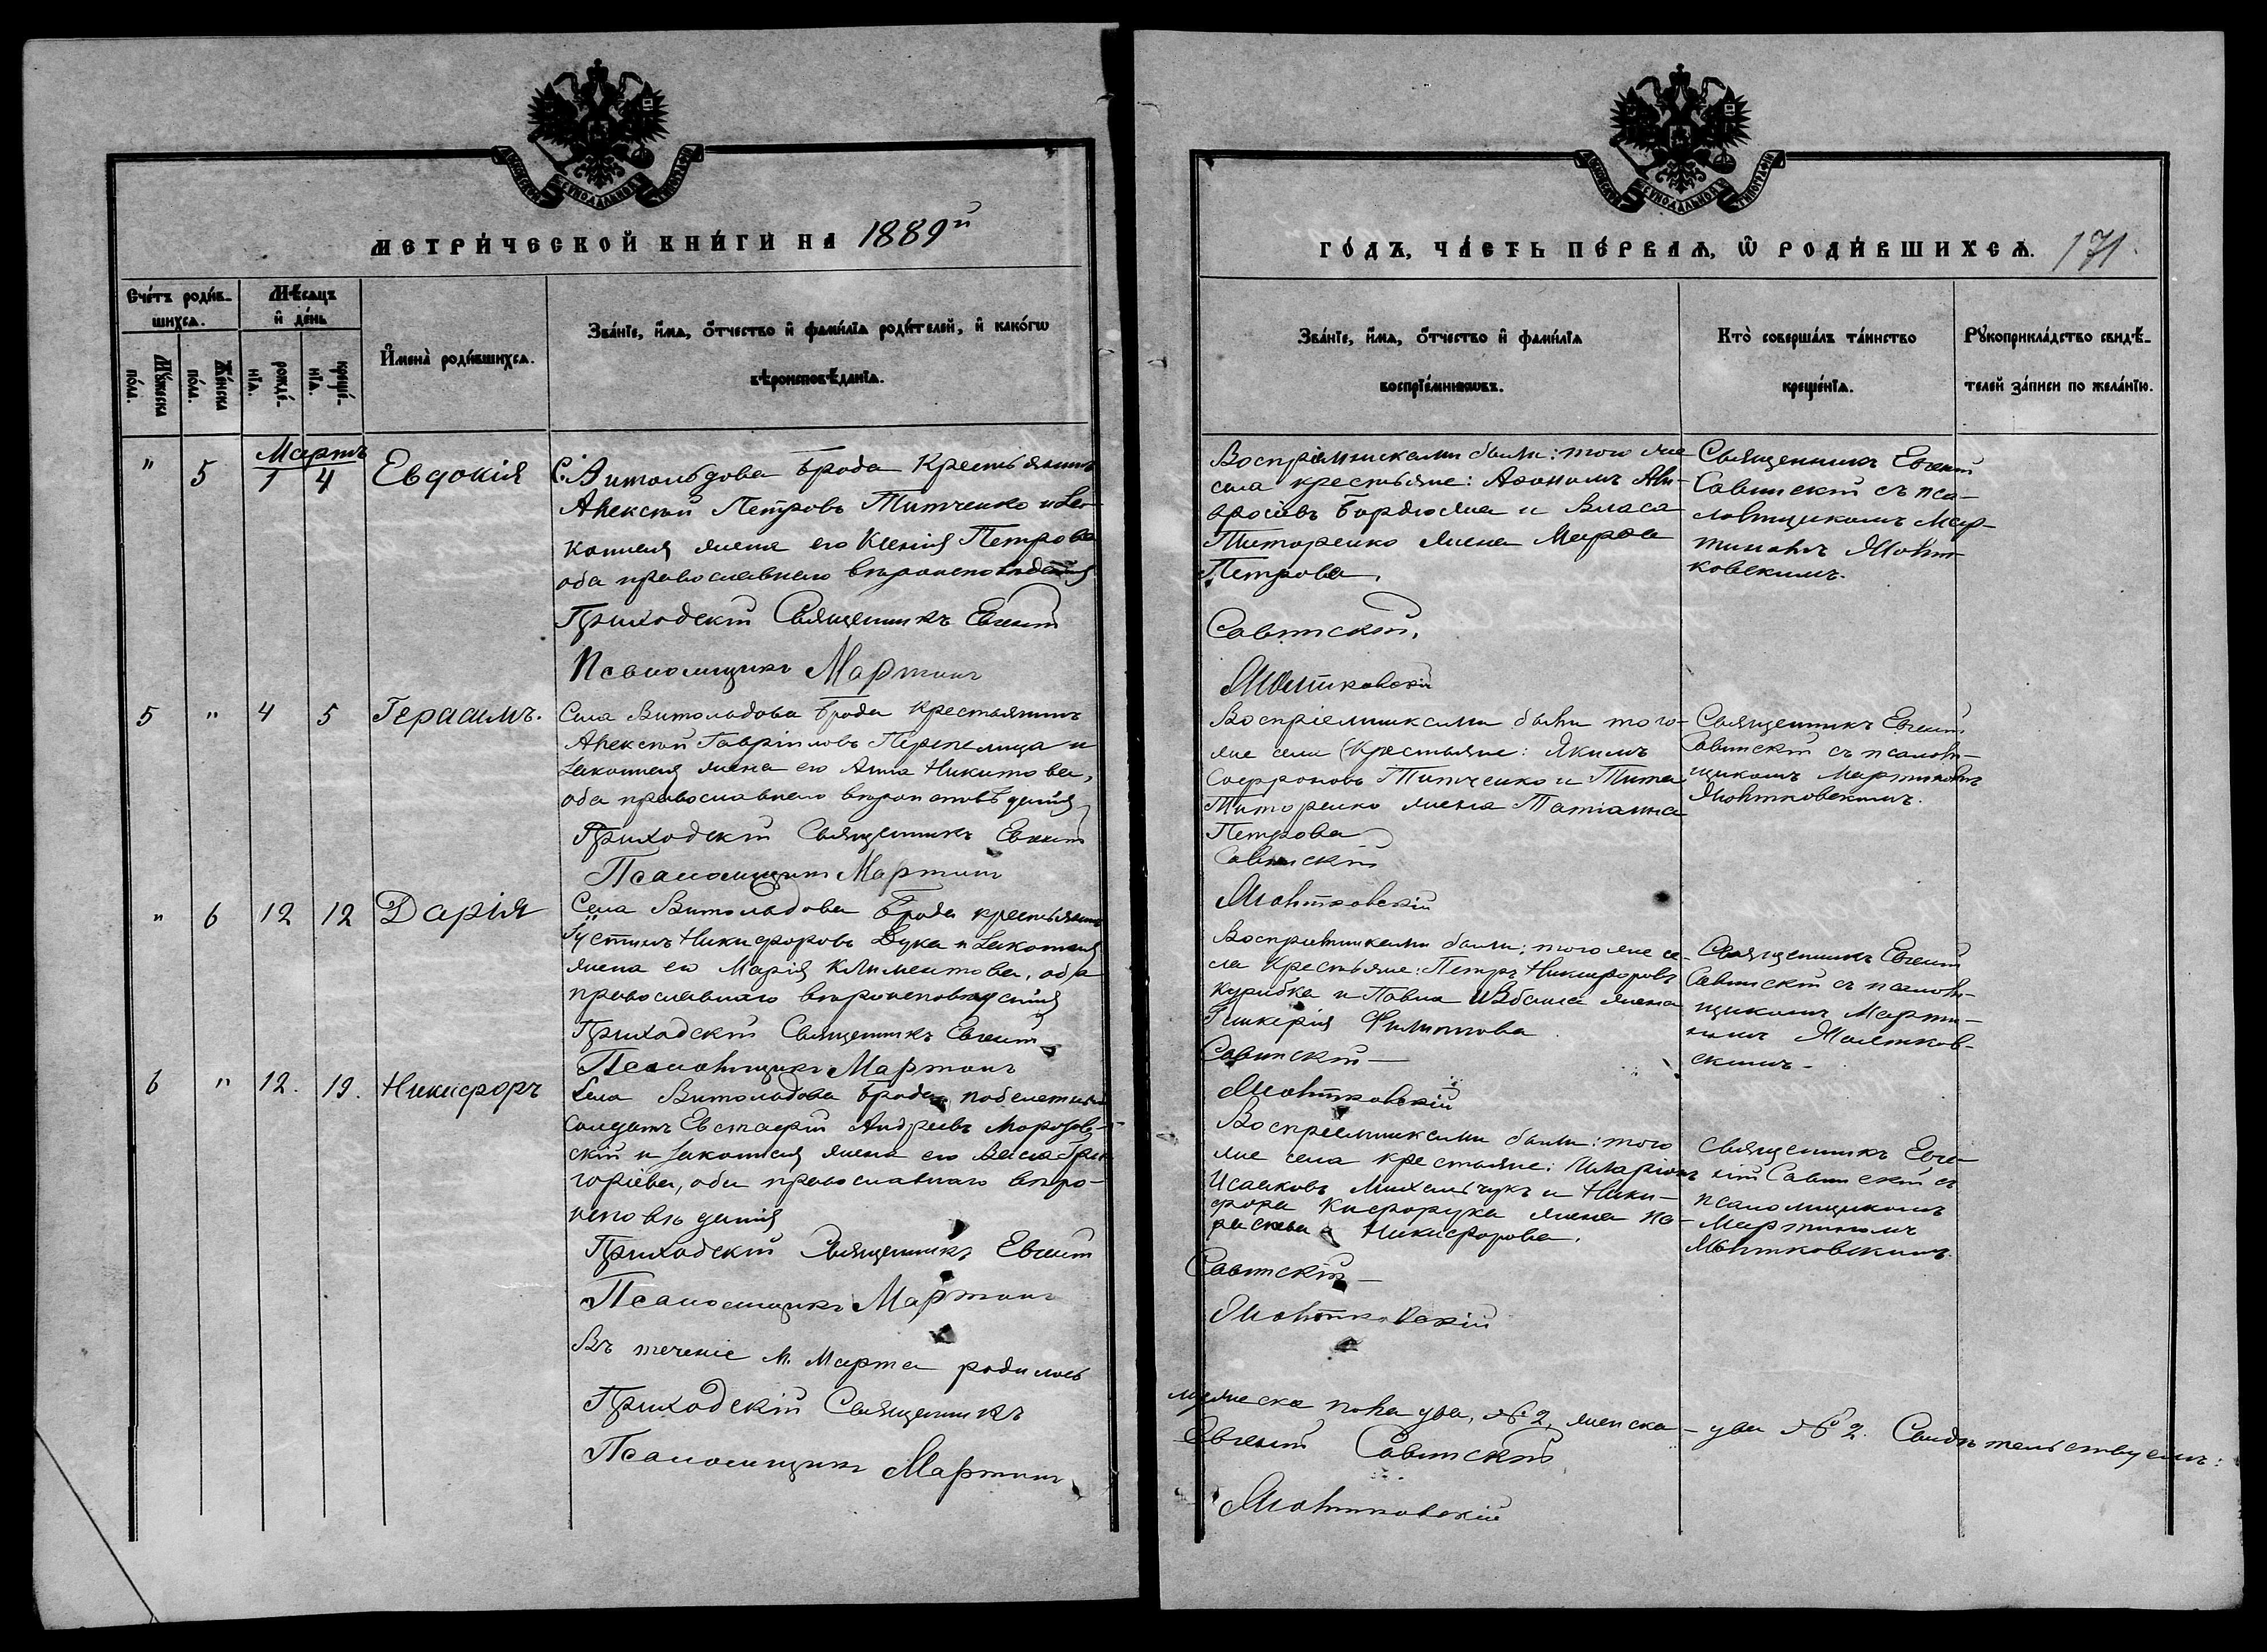 МЕТРИ́ЧЕСКОЙ КНИ́ГИ НА 1889й
Сче́тъ роди́в-
шихсѧ.
Мѣ́сѧцъ
и҆ де́нь
Мꙋ́жеска
по́ла.
Же́нска
по́ла.
рожде́-
нїѧ.
креще́-
нїѧ.
И҆мена̀ роди́вшихсѧ.
Зва́нїе, и҆́мѧ, ѻ҆́тчество и҆ фамѝлїѧ роди́телей, и҆ како́гѡ
вѣроисповѣ́данїѧ.
Мартъ
" 5 1 4 Евдокія
С. Витольдова Брода Крестьянинъ
Алексѣй Петровъ Титченко и За-
конная жена его Ксенія Петрова
оба православнаго вѣроисповѣданія
Приходскій Священникъ Евгеній
Псаломщикъ Мартинъ
5 " 4 5 Герасимъ.
Села Витольдова Брода Крестьянинъ
Алексѣй Гавріиловъ Перепелица и
Законная жена его Анна Никитова,
оба православнаго вѣроисповѣданія
Приходскій Священникъ Евгеній
Псаломщикъ Мартинъ
" 6 12 12 Дарія
Села Витольдова Брода крестьянинъ
Іустинъ Никифоровъ Дука и Законная
жена его Марія Климентова, оба
православнаго вѣроисповѣданія
Приходскій Священникъ Евгеній
Псаломщикъ Мартинъ
6 " 12. 19. Никифоръ
Села Витольдова Брода
Солдатъ Евстафій Андреевъ Морозов-
скій и Законная жена его Гри-
горіева, оба православнаго вѣро-
исповѣданія
Приходскій Священникъ Евгеній
Псаломщикъ Мартинъ
Въ теченіе М. Марта родилось
Приходскій Священникъ
Псаломщикъ Мартинъ
ГО́ДЪ, ЧА́СТЬ ПЕ́РВАѦ, Ѡ҆ РОДИ́ВШИХСѦ. 171.
Зва́нїе, и҆́мѧ, ѻ҆́тчество и҆ фамѝлїѧ
воспрїе́мникѡвъ.
Кто̀ соверша́лъ та́инство
креще́нїѧ.
Рꙋкоприкла́дство свидѣ́-
телей за́писи по жела́нїю.
Воспріемниками были: того же
села крестьяне:
Бордюжа и Власа
Титоренко жена Марфа
Петрова.
Священникъ Евгеній
Савитскій съ пса-
ломщикомъ Мар-
тиномъ Молчт-
ковскимъ.
Савитскій.
Воспріемниками были того-
же села Крестьяне: Якимъ
Софроновъ Титченко и Тита
Титоренко жена Татіанна
Петрова
Священникъ Евгеній
Савитскій съ псалом-
щикомъ Мартиномъ
Савитскій
Воспріемниками были: того же се-
ла Крестьяне: Петръ Никифоровъ
Курибка и Павла жена
Гликерія Филиппова
Священникъ Евгеній
Савитскій съ псалом-
щикомъ Марти-
номъ
скимъ.
Савитскій
Воспріемниками были: того
же села крестьяне: Иларіонъ
Исааковъ Михальчукъ и Ники-
фора жена Па-
раскева Никифорова.
Священникъ Евге-
ній Савитскій съ
псаломщикомъ
Мартиномъ
Савитскій
мужеска пола два, № 2, женска - два № 2. Свидѣтельствуемъ:
Евгеній Савитскій